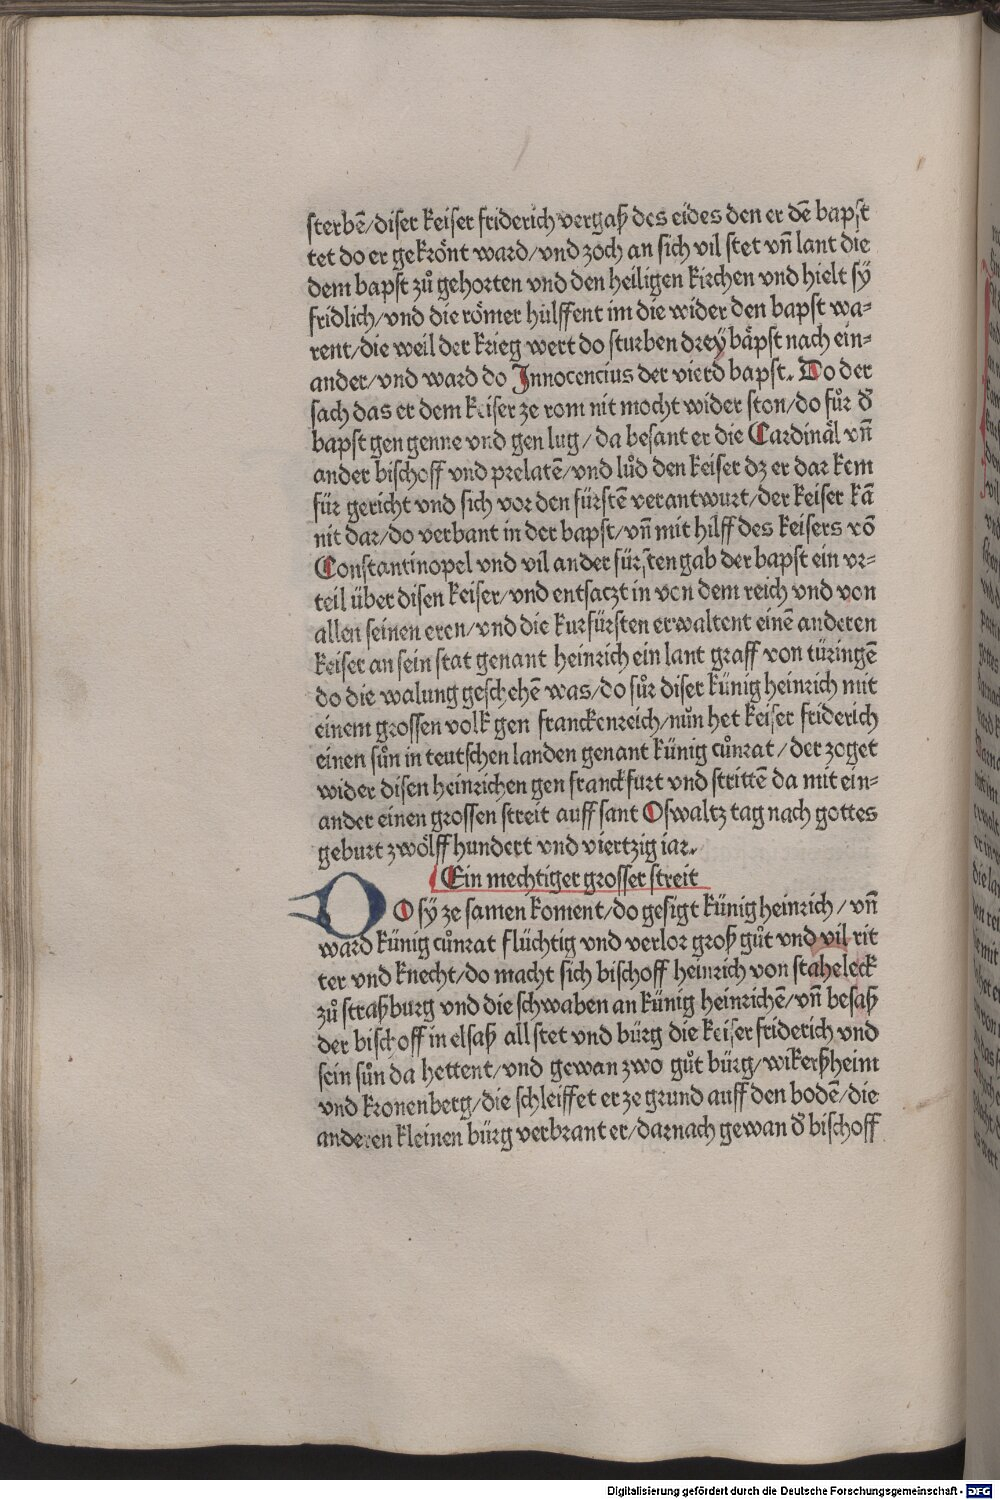 sterbē/diser keiser friderich vergaß des eides den er dē bapst
tet do er gekrönt ward/vnd zoch an sich vil stet vn̄ lant die
dem bapst zuͦ gehorten vnd den heiligen kirchen vnd hielt sÿ
fridlich/vnd die römer hulffent im die wider den bapst wa⸗
rent/die weil der krieg wert do sturben dreÿ bäpst nach ein⸗
ander/vnd ward do Innocencius der vierd bapst. Do der
sach das er dem keiser ze rom nit mocht wider ston/do fuͦr đ
bapst gen genne vnd gen lug/da besant er die Cardinäl vn̄
ander bischoff vnd prelatē/vnd luͦd den keiser dz er dar kem
für gericht vnd sich vor den fürstē verantwurt/der keiser kā
nit dar/do verbant in der bapst/vn̄ mit hilff des keisers vō
Constantinopel vnd vil ander fürsten gab der bapst ein vr⸗
teil über disen keiser/vnd entsaczt in von dem reich vnd von
allen seinen eren/vnd die kurfürsten erwaltent einē anderen
keiser an sein stat genant heinrich ein lant graff von türingē
do die walung geschehē was/do fuͦr diser künig heinrich mit
einem grossen volk gen franckenreich/nuͦn het keiser friderich
einen suͦn in teutschen landen genant künig cuͦnrat/der zoget
wider disen heinrichen gen franckfurt vnd strittē da mit ein⸗
ander einen grossen streit auff sant Oswaltz tag nach gottes
geburt zwölff hundert vnd viertzig iar.
Ein mechtiger grosser streit
DO sÿ ze samen koment/do gesigt künig heinrich/vn̄
ward künig cuͦnrat flüchtig vnd verlor groß guͦt vnd vil rit
ter vnd knecht/do macht sich bischoff heinrich von staheleck
zuͦ straßburg vnd die schwaben an künig heinrichē/vn̄ besaß
der bischoff in elsaß all stet vnd bürg die keiser friderich vnd
sein suͦn da hettent/vnd gewan zwo guͦt bürg/wikerßheim
vnd kronenberg/die schleiffet er ze grund auff den bodē/die
anderen kleinen bürg verbrant er/darnach gewan đ bischoff
Digitalisierung gefördert durch die Deutsche Forschungsgemeinschaft - DFG